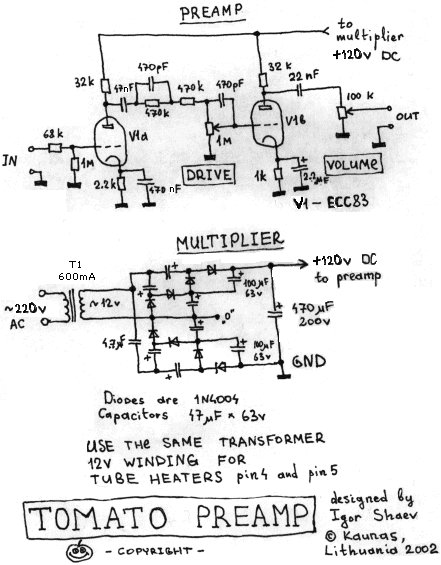 PREAMP
to
multiplier
+120v DC
32k
47nF
470pF
470k
470k
470pF
32k
22nF
100k
OUT
V1a
V1b
68k
IN
1M
1M
2.2k
470nF
DRIVE
1k
2.2µF
VOLUME
V1 - ECC83
MULTIPLIER
T1
600mA
~220v
AC
~12v
4.7µF
100µF
63v
"0"
100µF
63v
+120v DC
to preamp
470µF
200v
GND
Diodes are 1N4004
Capacitors 47µF × 63v
USE THE SAME TRANSFORMER
12V WINDING FOR
TUBE HEATERS pin4 and pin5
TOMATO PREAMP
- COPYRIGHT -
designed by
Igor Shaev
© Kaunas,
Lithuania 2002